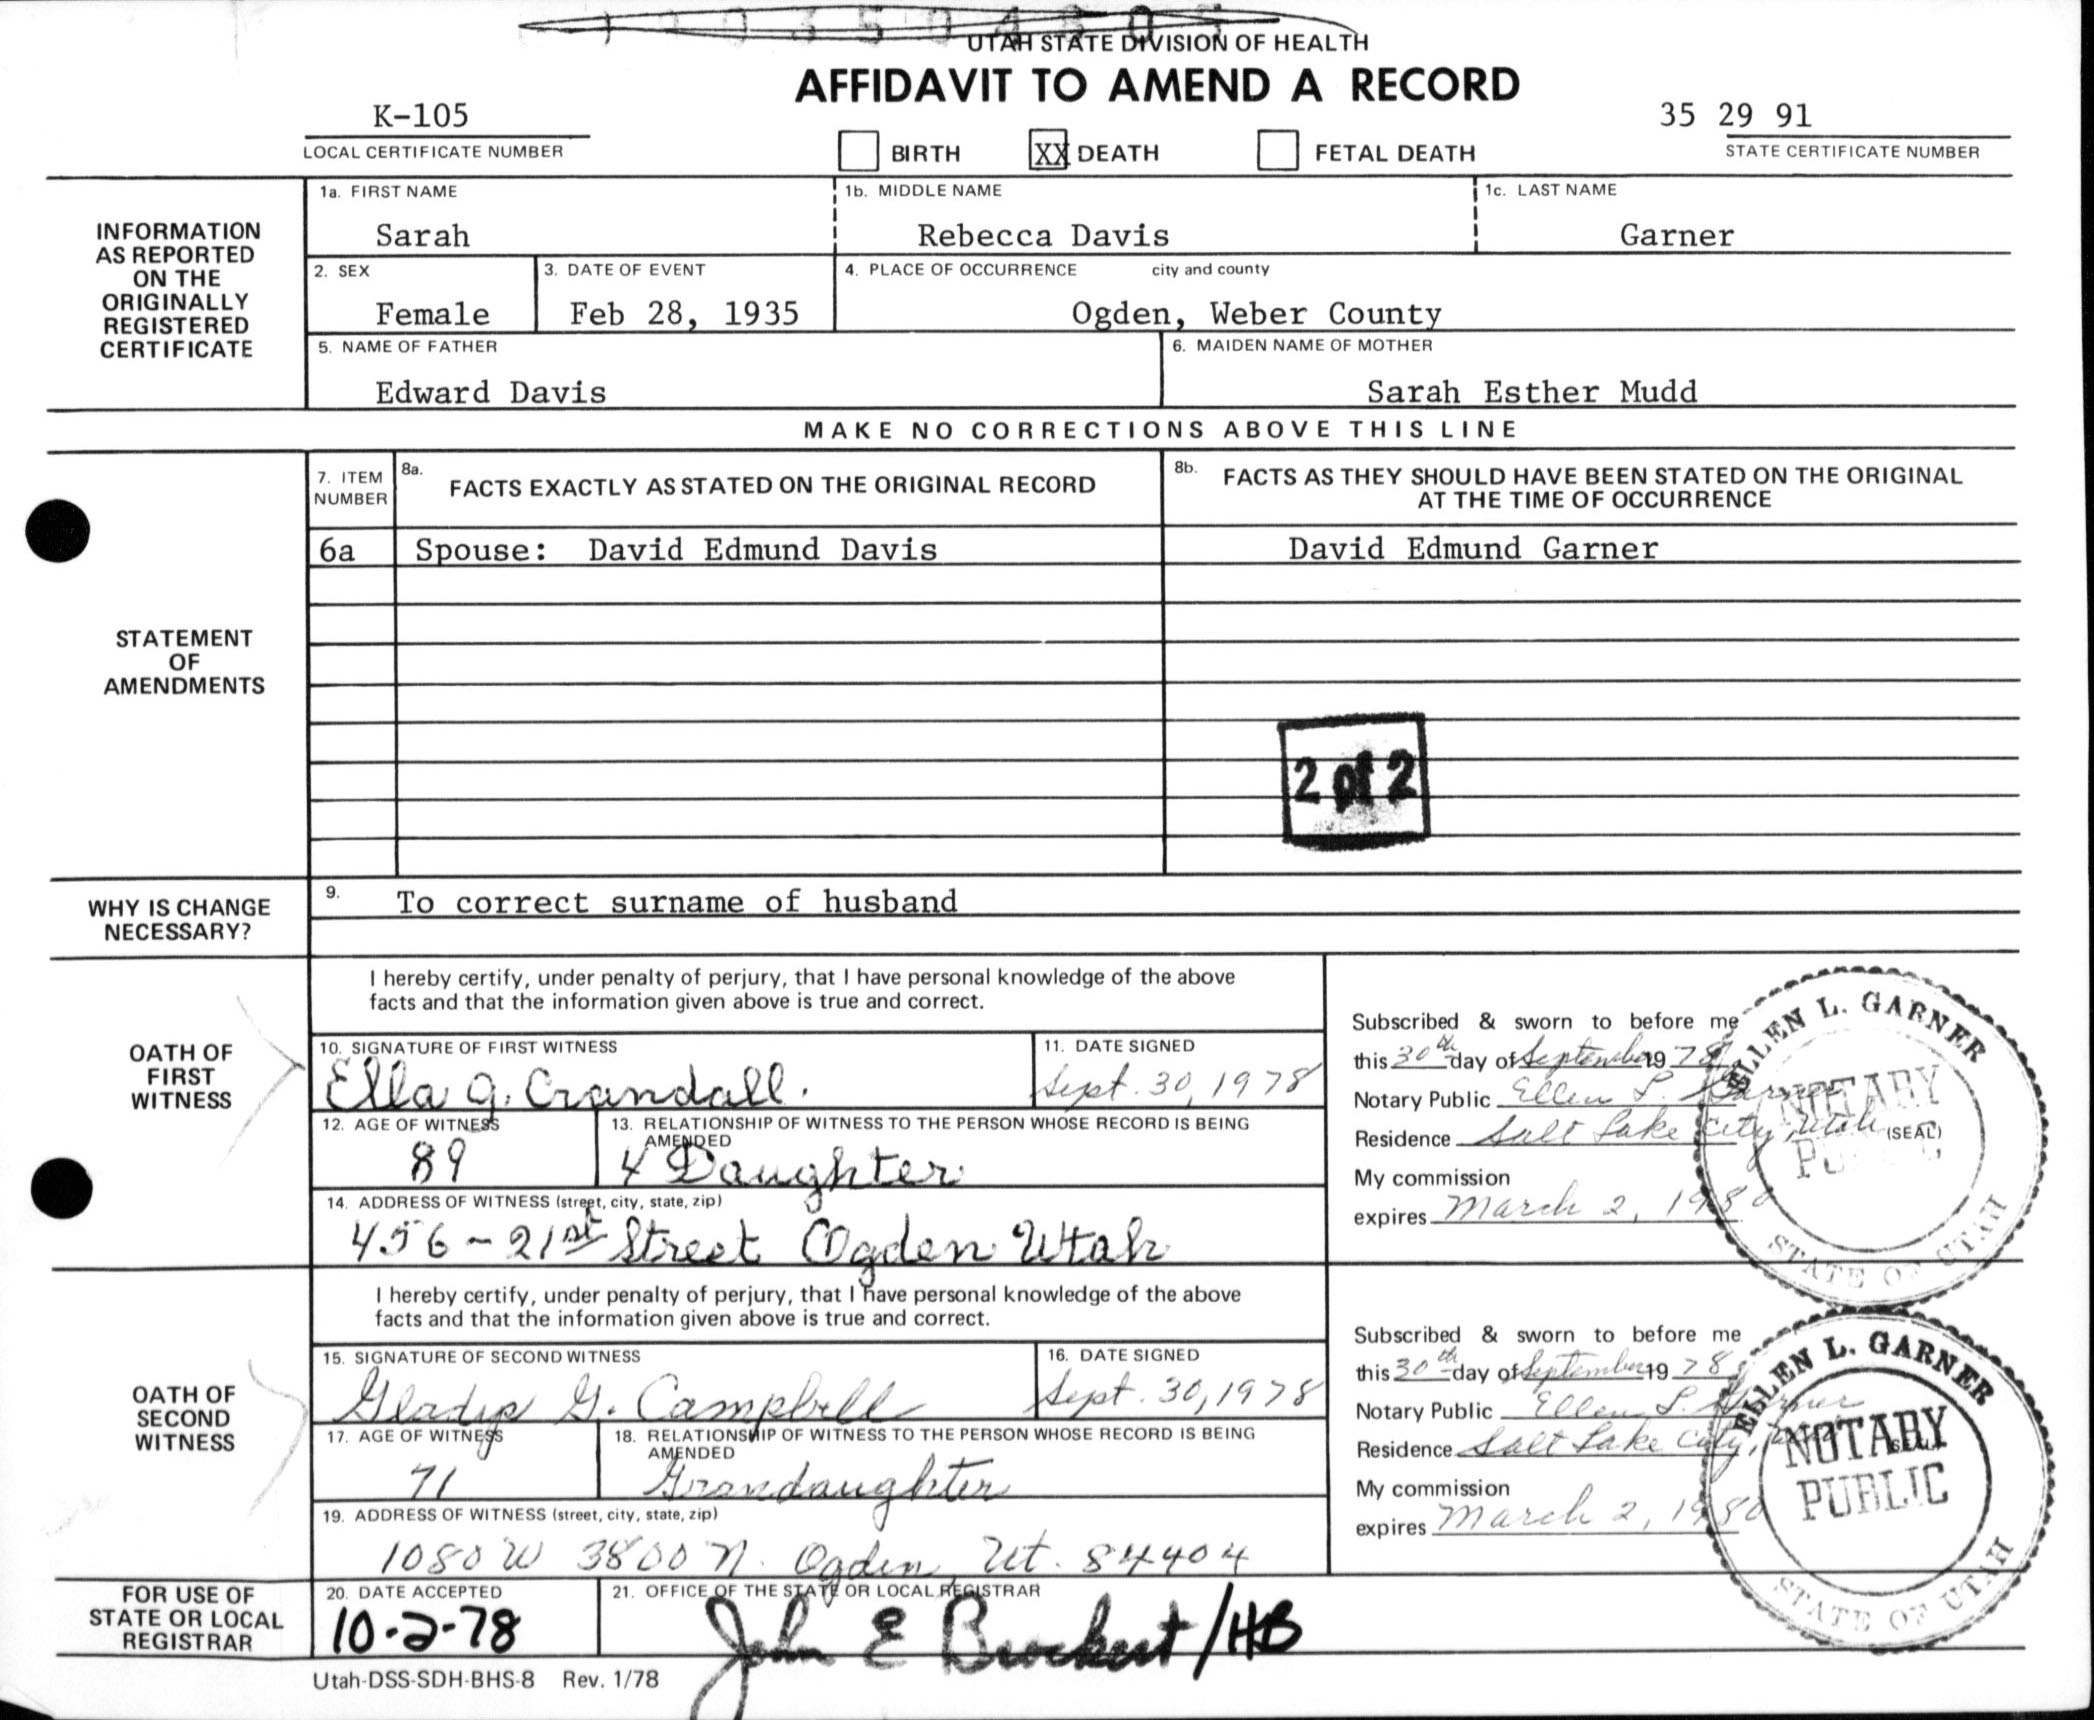 UTAH STATE DIVISION OF HEALTH
AFFIDAVIT TO AMEND A RECORD
K-105
LOCAL CERTIFICATE NUMBER
BIRTH
XX DEATH
FETAL DEATH
35 29 91
STATE CERTIFICATE NUMBER
INFORMATION
AS REPORTED
ON THE
ORIGINALLY
REGISTERED
CERTIFICATE
1a. FIRST NAME
Sarah
1b. MIDDLE NAME
Rebecca Davis
1c. LAST NAME
Garner
2. SEX
Female
3. DATE OF EVENT
Feb 28, 1935
4. PLACE OF OCCURRENCE city and county
Ogden, Weber County
5. NAME OF FATHER
Edward Davis
6. MAIDEN NAME OF MOTHER
Sarah Esther Mudd
MAKE NO CORRECTIONS ABOVE THIS LINE
STATEMENT
OF
AMENDMENTS
7. ITEM
NUMBER
8a. FACTS EXACTLY AS STATED ON THE ORIGINAL RECORD
8b. FACTS AS THEY SHOULD HAVE BEEN STATED ON THE ORIGINAL
AT THE TIME OF OCCURRENCE
6a
Spouse: David Edmund Davis
David Edmund Garner
2 of 2
WHY IS CHANGE
NECESSARY?
9. To correct surname of husband
OATH OF
FIRST
WITNESS
I hereby certify, under penalty of perjury, that I have personal knowledge of the above
facts and that the information given above is true and correct.
10. SIGNATURE OF FIRST WITNESS
Ella G. Crandall.
11. DATE SIGNED
Sept. 30, 1978
12. AGE OF WITNESS
89
13. RELATIONSHIP OF WITNESS TO THE PERSON WHOSE RECORD IS BEING
AMENDED
Daughter
14. ADDRESS OF WITNESS (street, city, state, zip)
456 - 21st Street Ogden Utah
Subscribed & sworn to before me
this 30th day of September 1978
Notary Public Ellen L. Garner
Residence Salt Lake City, Utah (SEAL)
My commission
expires March 2, 1980
ELLEN L. GARNER
NOTARY
PUBLIC
STATE OF UTAH
OATH OF
SECOND
WITNESS
I hereby certify, under penalty of perjury, that I have personal knowledge of the above
facts and that the information given above is true and correct.
15. SIGNATURE OF SECOND WITNESS
Gladys G. Campbell
16. DATE SIGNED
Sept. 30, 1978
17. AGE OF WITNESS
71
18. RELATIONSHIP OF WITNESS TO THE PERSON WHOSE RECORD IS BEING
AMENDED
Grandaughter
19. ADDRESS OF WITNESS (street, city, state, zip)
1080 W 3800 N. Ogden, Ut. 84404
Subscribed & sworn to before me
this 30th day of September 1978
Notary Public Ellen L. Garner
Residence Salt Lake City,
My commission
expires March 2, 1980
ELLEN L. GARNER
NOTARY
PUBLIC
STATE OF UTAH
FOR USE OF
STATE OR LOCAL
REGISTRAR
20. DATE ACCEPTED
10-2-78
21. OFFICE OF THE STATE OR LOCAL REGISTRAR
John E Brockert/HB
Utah-DSS-SDH-BHS-8 Rev. 1/78